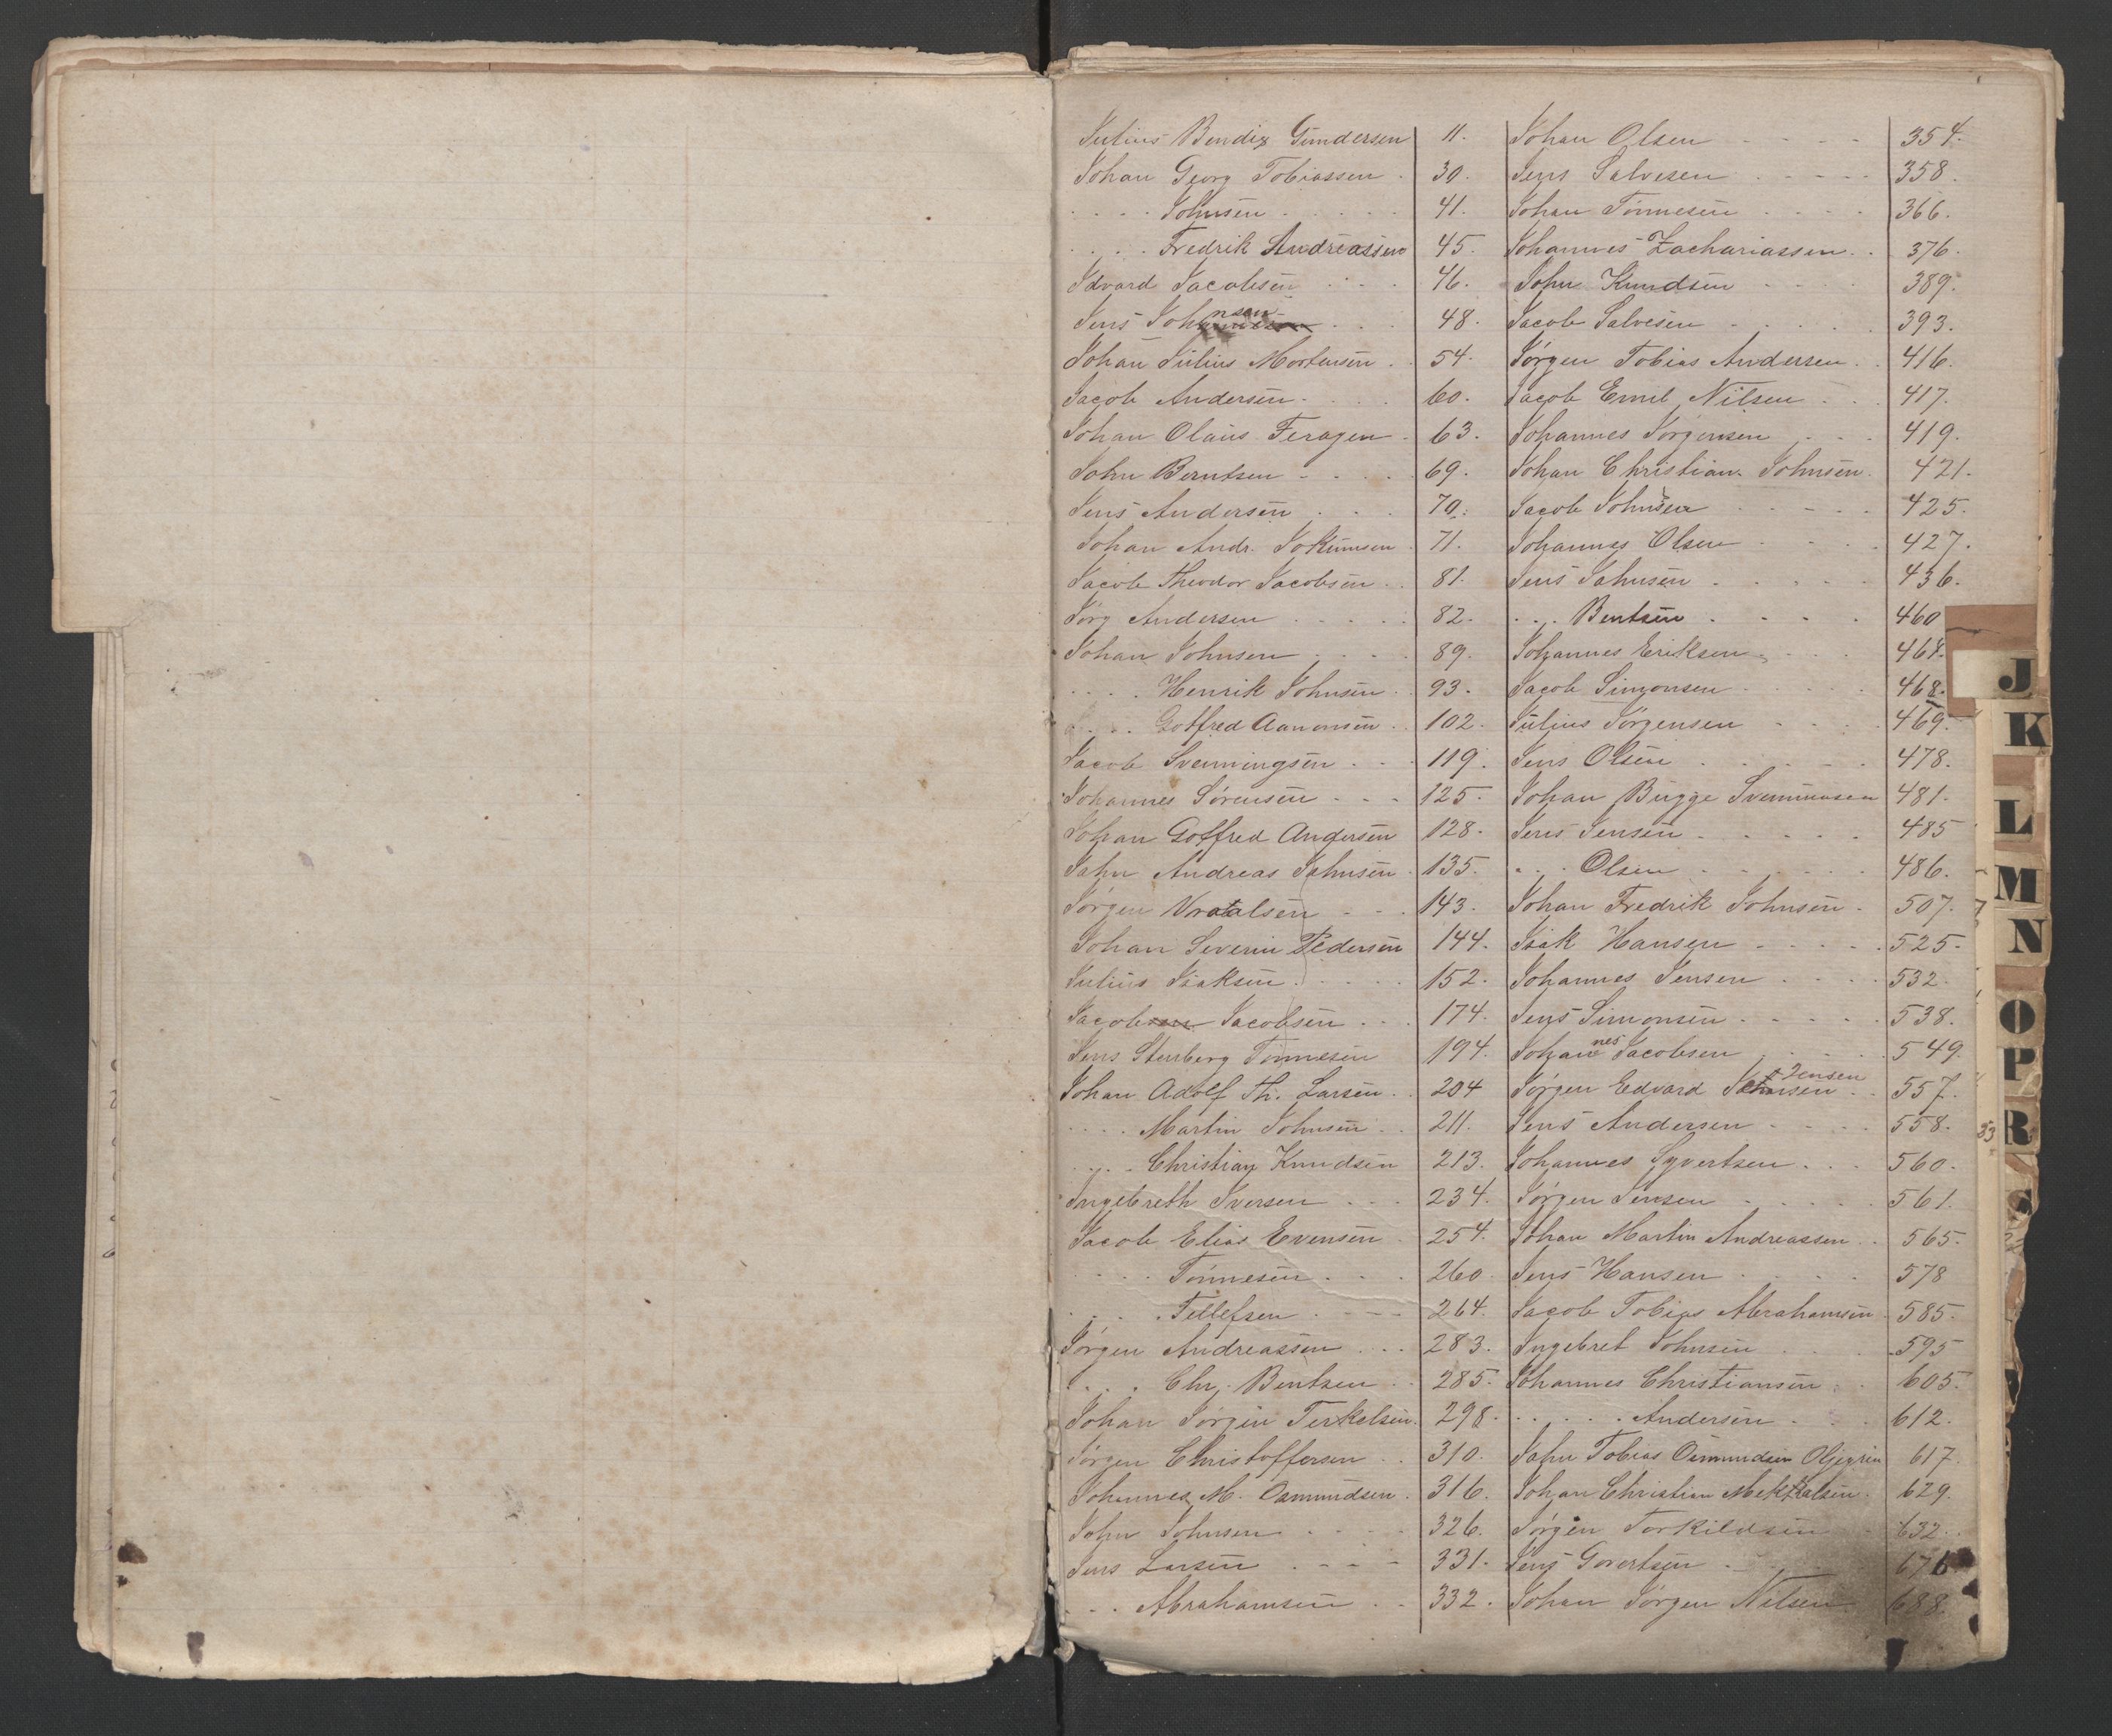 Julius Bendix Gundersen 11.
Johan Georg Tobiassen . 30.
. . . . Johnsen . . . . . 41.
. . . . Fredrik Andreassen 45.
Edvard Jacobsen . . . 46.
Jens Johnsen . . . 48.
Johan Julius Mortensen . 54.
Jacob Andersen . . . . 60.
Johan Olaus Feragen . 63.
John Berntsen . . . . . 69.
Jens Andersen . . . 70.
Johan Andr. Jokumsen . 71.
Jacob Theodor Jacobsen . . 81.
Jørg Andersen . . . . . 82.
Johan Johnsen . . . . 89.
. . . . Henrik Johnsen . 93.
. . . . Gotfred Aanonsen . 102.
Jacob Svenningsen . . . 119.
Johannes Sørensen . . . 125.
Johan Gotfred Andersen 128.
John Andreas Johnsen . 135.
Jørgen Vraalsen . . . 143.
Johan Severin Pedersen 144.
Julius Isaksen . . . . . 152.
Jacob Jacobsen . . . 174.
Jens Stenberg Tønnesen 194.
Johan Adolf Th. Larsen . 204
. . . . Martin Johnsen . . 211.
. . . . Christian Knudsen 213.
Ingebreth Iversen . . . 234.
Jacob Elias Evensen . 254.
. . . . Tønnesen . . . 260
. . . . Tellefsen . . . . 264.
Jørgen Andreassen . . . 283.
. . . . Chr. Bentsen . . 285.
Johan Jørgen Terkelsen . 298.
Jørgen Christoffersen . . 310.
Johannes M. Osmundsen . 316.
John Johnsen . . . . 326.
Jens Larsen . . . . 331.
. . . Abrahamsen . . 332.
Johan Olsen . . . . 354.
Jens Salvesen . . . . . 358.
Johan Tønnesen . . . . 366.
Johannes Zachariassen . . 376.
John Knudsen . . . . 389.
Jacob Salvesen . . . . . 393.
Jørgen Tobias Andersen . . 416.
Jacob Emil Nilsen . . . 417.
Johannes Jørgensen . . . 419.
Johan Christian Johnsen . 421.
Jacob Johnsen . . . . . 425.
Johannes Olsen . . . . 427.
Jens Johnsen . . . . . 436.
. . . Bentsen . . . . 460
Johannes Eriksen . . . 464.
Jacob Simonsen . . . . . 468.
Julius Jørgensen . . . . 469.
Jens Olsen . . . . . 478.
Johan Bugge Svenningsen 481.
Jens Jensen . . . . . 485
. . . Olsen . . . . . . 486.
Johan Fredrik Johnsen . 507.
Isak Hansen . . . . . 525.
Johannes Jensen . . . . 532.
Jens Simonsen . . . . . 538.
Johannes Jacobsen . . . . . 549.
Jørgen Edvard Jensen . . 557.
Jens Andersen . . . . 558.
Johannes Syvertsen . . . 560.
Jørgen Jensen . . . . . 561.
Johan Martin Andreassen . . 565.
Jens Hansen . . . . 578
Jacob Tobias Abrahamsen . 585.
Ingebret Johnsen . . . . 595
Johannes Christiansen . . 605.
. . . . . Andersen . . . 612.
John Tobias Osmundsen 617.
Johan Christian 629.
Jørgen Torkildsen 632.
Jens Govertsen . . 676
Johan Jørgen Nilsen 688.
J
K
L
M
N
O
P
R
S
33